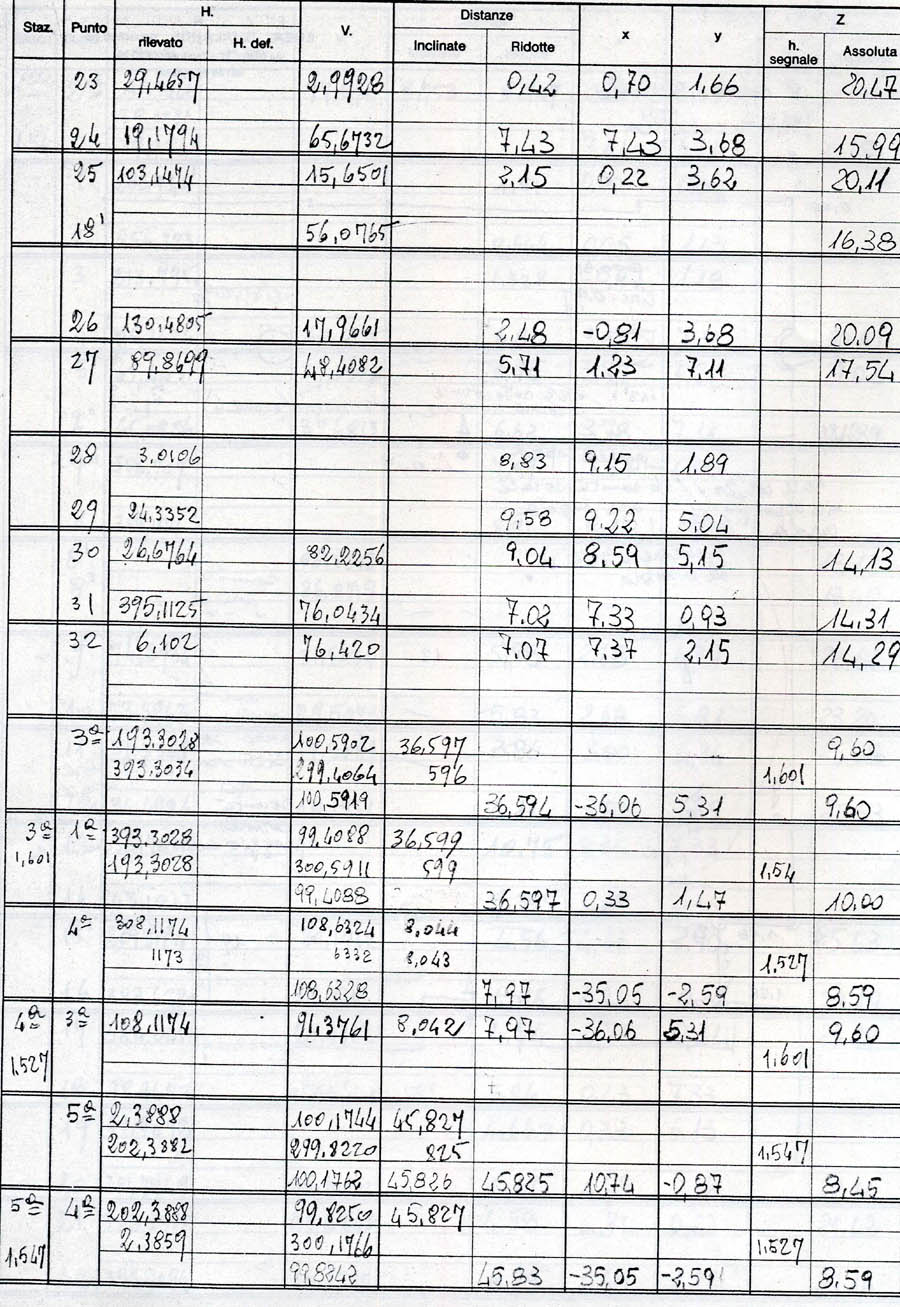 H. Distanze Z
Staz. Punto V. x y
rilevato H. def. Inclinate Ridotte h. segnale Assoluta
23 29,4657 2,9928 0,42 0,70 1,66 20,47
24 19,1794 65,6732 7,43 7,43 3,68 15,99
25 103,1474 15,6501 2,15 0,22 3,62 20,11
18' 56,0765 16,38
26 130,4805 17,9661 2,48 -0,81 3,68 20,09
27 89,8699 48,4082 5,71 1,23 7,11 17,54
28 3,0106 8,83 9,15 1,89
29 24,3352 9,58 9,22 5,04
30 26,6764 82,2256 9,04 8,59 5,15 14,13
31 395,1125 76,0434 7,02 7,33 0,93 14,31
32 6,102 76,420 7,07 7,37 2,15 14,29
3ª 193,3028 100,5902 36,597 9,60
393,3034 299,4064 596 1,601
100,5919 36,594 -36,06 5,31 9,60
3ª 1ª 393,3028 99,4088 36,599
1,601 193,3028 300,5911 599 1,54
99,4088 36,597 0,33 1,47 10,00
4ª 308,1174 108,6324 8,044
1173 6332 8,043 1,527
108,6328 7,97 -35,05 -2,59 8,59
4ª 3ª 108,1174 91,3761 8,042 7,97 -36,06 5,31 9,60
1,527 1,601
5ª 2,3888 100,1744 45,827
202,3882 299,8220 825 1,547
100,1762 45,826 45,825 10,74 -0,87 8,45
5ª 4ª 202,3888 99,8250 45,827
1,547 2,3859 300,1766 1,527
99,8242 45,83 -35,05 -2,59 8,59